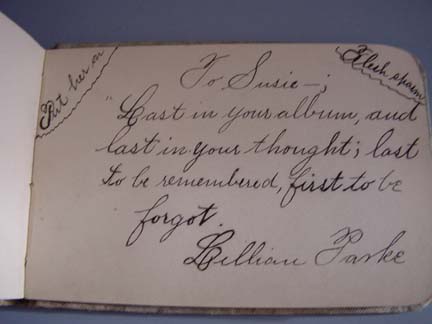 Put her on
Flesh spasm
To Susie—;
"Last in your album, and
last in your thought; last
to be remembered, first to be
forgot.
Lillian Parke